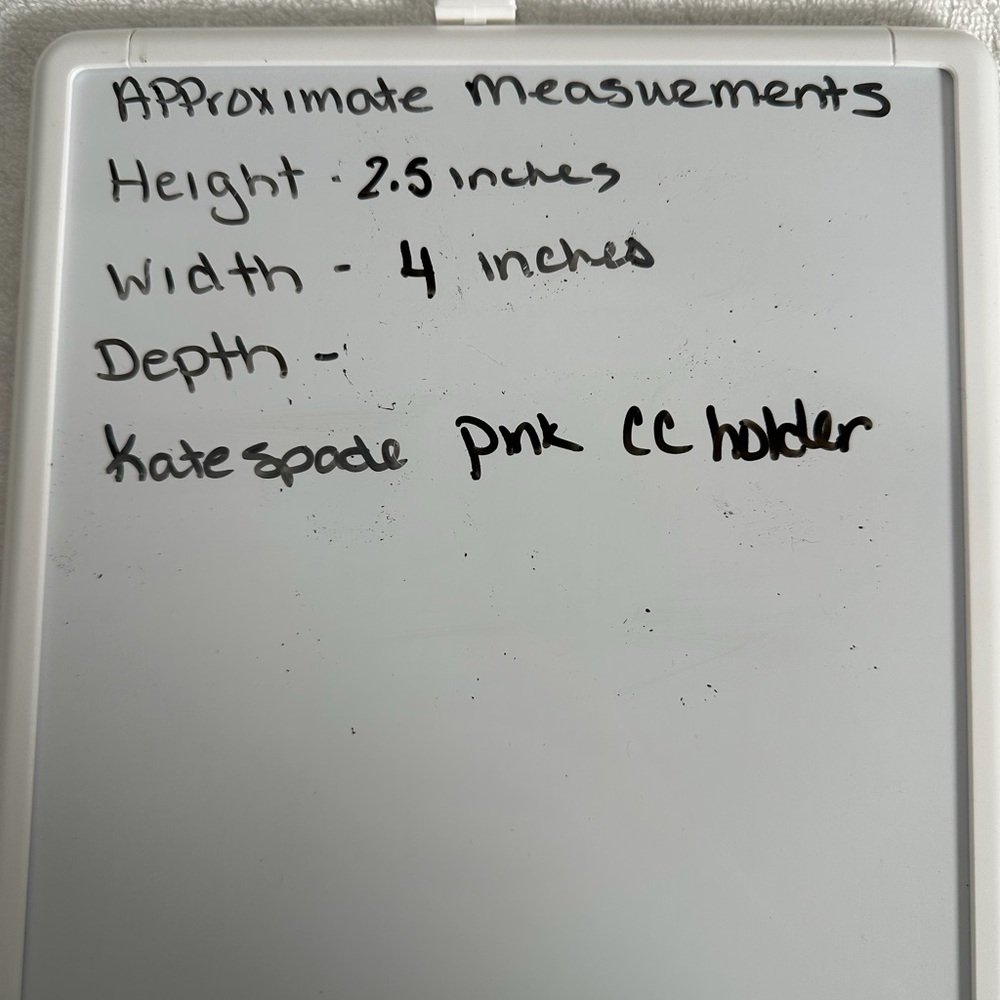 Approximate measurements
Height - 2.5 inches
Width - 4 inches
Depth -
Kate spade pink CC holder